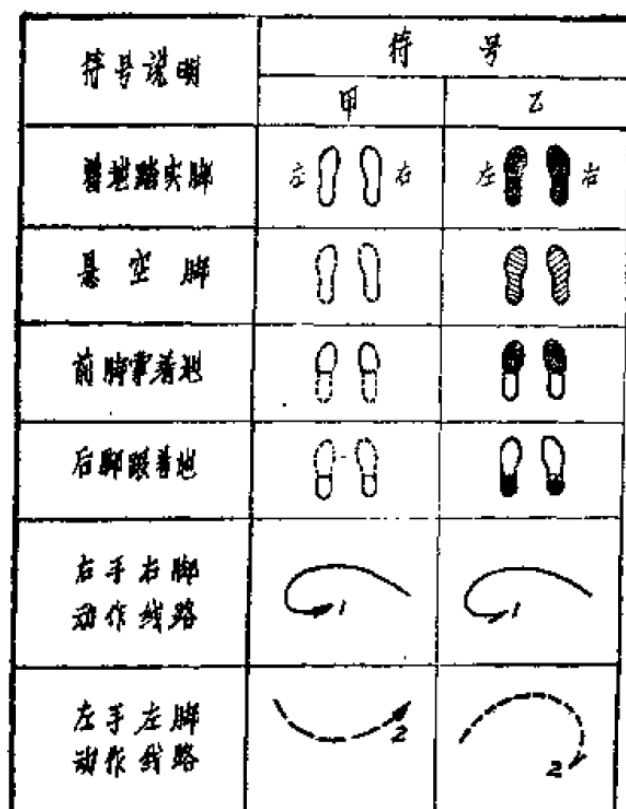 符号说明
符 号
甲 乙
着地踏实脚 左 右 左 右
悬空脚
前脚掌着地
后脚跟着地
右手右脚
动作线路
1 1
左手左脚
动作线路
2 2